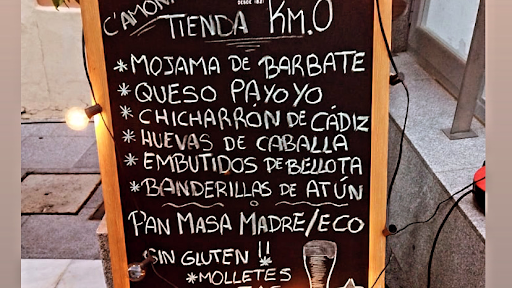 DESDE 1821
TIENDA KM.0
*MOJAMA DE BARBATE
*QUESO PAYOYO
*CHICHARRÓN DE CÁDIZ
*HUEVAS DE CABALLA
*EMBUTIDOS DE BELLOTA
*BANDERILLAS DE ATÚN
PAN MASA MADRE/ECO
SIN GLUTEN !!
*MOLLETES